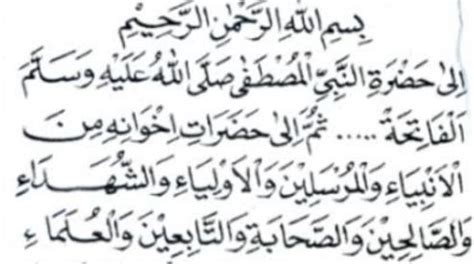 بِسْمِ اللهِ الرَّحْمٰنِ الرَّحِيْمِ
اِلٰى حَضْرَةِ النَّبِيِّ الْمُصْطَفٰى صَلَّى اللهُ عَلَيْهِ وَسَلَّمَ
اَلْفَاتِحَةْ ..... ثُمَّ اِلٰى حَضَرَاتِ اِخْوَانِهِ مِنَ
الْاَنْبِيَاءِ وَالْمُرْسَلِيْنَ وَالْاَوْلِيَاءِ وَالشُّهَدَاءِ
وَالصَّالِحِيْنَ وَالصَّحَابَةِ وَالتَّابِعِيْنَ وَالْعُلَمَاءِ